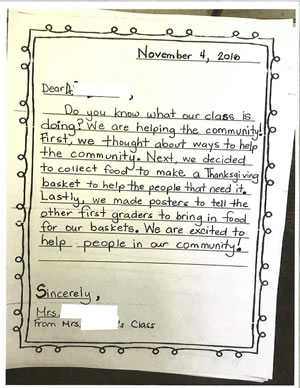 November 4, 2016
Dear
Do you know what our class is
doing? We are helping the community!
First, we thought about ways to help
the community. Next, we decided
to collect food to make a Thanksgiving
basket to help the people that need it.
Lastly, we made posters to tell the
other first graders to bring in food
for our baskets. We are excited to
help people in our community!
Sincerely,
Mrs.
From Mrs. 's Class